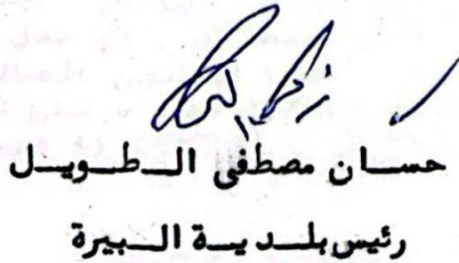 حسان مصطفى الطويل
رئيس بلدية البيرة